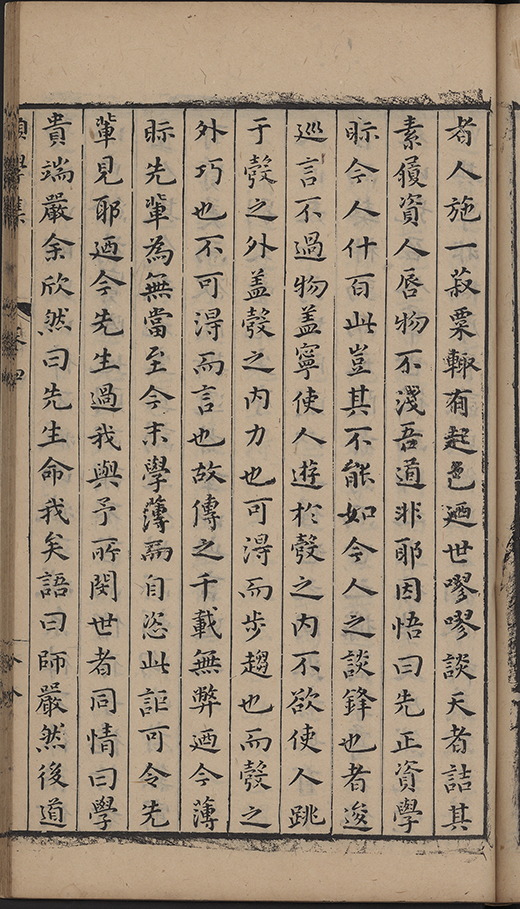 者人施一菽粟輙有起色廼世嘐嘐談天者詰其
素履資人唇物不淺吾道非耶因悟曰先正資學
眎今人什百此豈其不能如今人之談鋒也者逡
巡言不過物盖寧使人遊於彀之内不欲使人跳
于彀之外盖彀之内力也可得而步趨也而彀之
外巧也不可得而言也故傳之千載無弊廼今薄
眎先輩為無當至今末學簿而自恣此詎可令先
輩見耶廼今先生過我與予所閔世者同情曰學
貴端嚴余欣然曰先生命我矣語曰師嚴然後道
學集
卷四